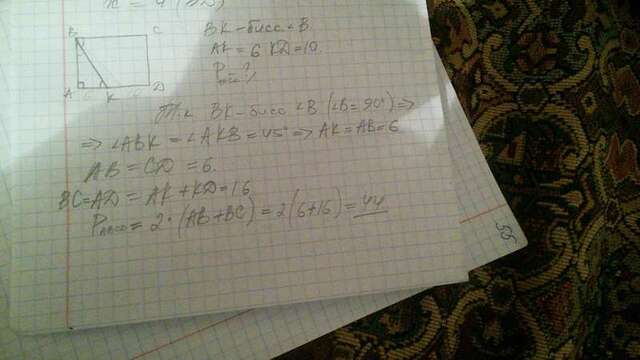 A B
K
D C
BK - бисс ∠B.
AK = 6 KD = 10.
P - ?
Т.к. BK - бисс ∠B (∠B = 90°) =>
=> ∠ABK = ∠AKB = 45° => AK = AB = 6
AB = CD = 6.
BC = AD = AK + KD = 16
= 2 · (AB + BC) = 2(6+16) = 44
55